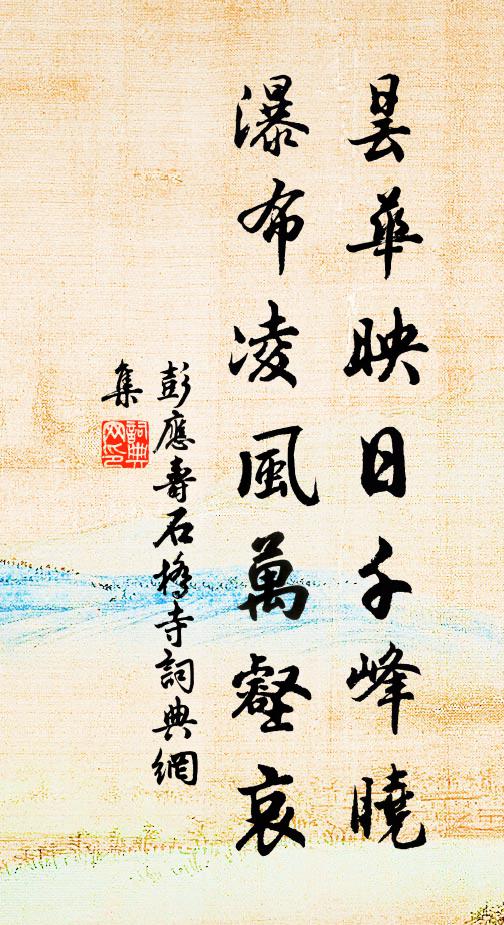 曇華映日千峰曉
瀑布凌風萬壑哀
彭應壽石橋寺詞典網
集
詞典
网印